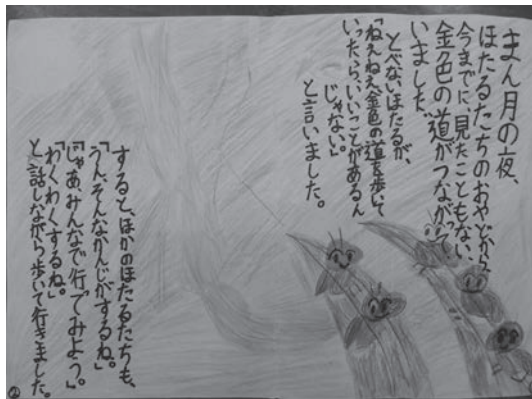 まん月の夜、
ほたるたちのおやどから、
今までに、見たこともない、
金色の道がつながって
いました。
とべないほたるが、
「ねえねえ金色の道を歩いて
いったら、いいことがあるん
じゃない。」
と言いました。
すると、ほかのほたるたちも、
「うん、そんなかんじがするね。」
「じゃあみんなで行てみよう。」
「わくわくするね。」
と話しながら歩いて行きました。
②